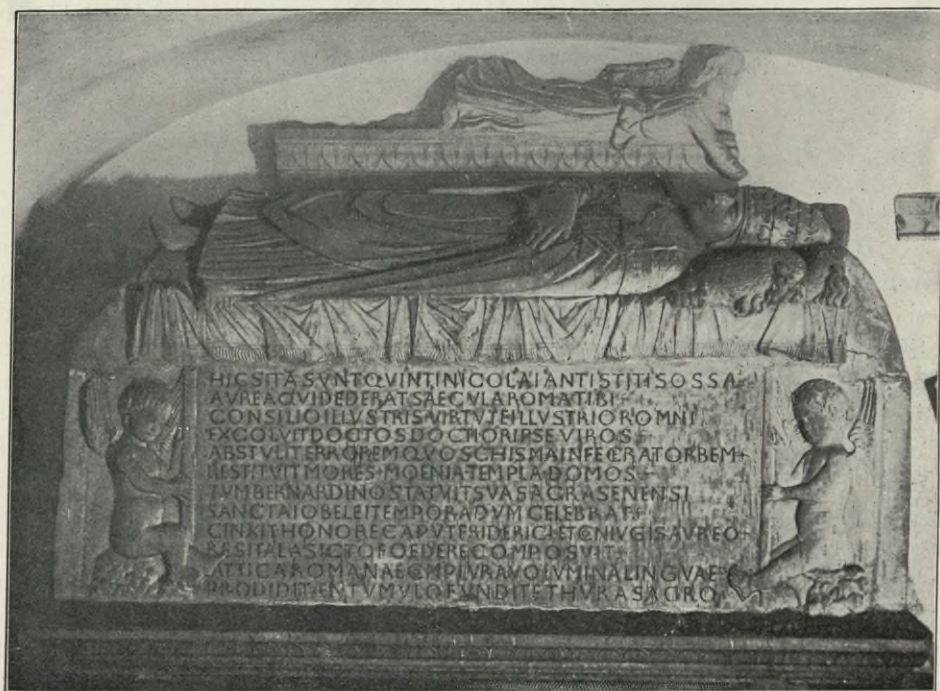 HIC SITA SVNT QVINTI NICOLAI ANTISTITIS OSSA
AVREA QVI DEDERAT SAECVLA ROMA TIBI
CONSILIO ILLVSTRIS VIRTVTE ILLVSTRIOR OMNI
EXCOLVIT DOCTOS DOCTIOR IPSE VIROS
ABSTVLIT ERROREM QVO SCHISMA INFECERAT ORBEM
RESTITVIT MORES MOENIA TEMPLA DOMOS
TVM BERNARDINO STATVIT SVA SACRA SENENSI
SANCTA IOBELEI TEMPORA DVM CELEBRAT
CINXIT HONORE CAPVT FRIDERICI ET CNIVGIS AVREO
RES ITALAS ICTO FOEDERE COMPOSVIT
ATTICA ROMANAE CMPLVRA VOLVMINA LINGVAE
PRODIDIT EN TVMVLO FVNDITE THVRA SACRO